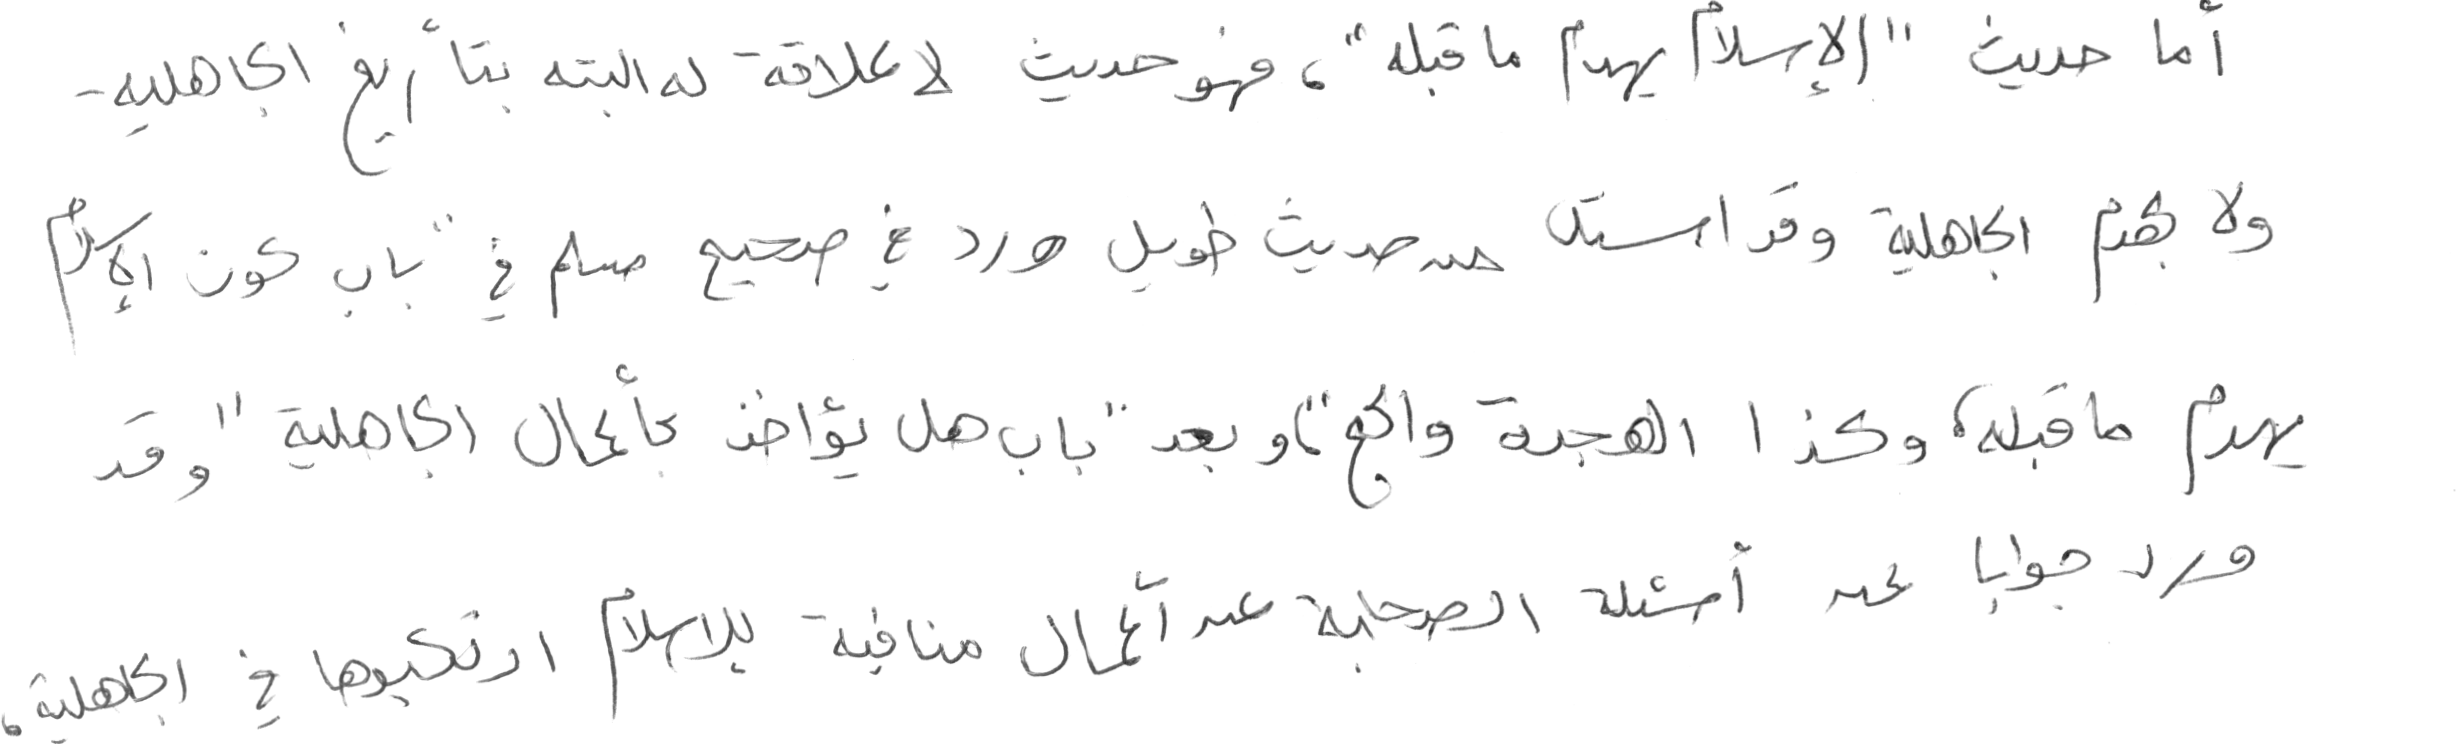 أما حديث "الإسلام يهدم ما قبله"، فهو حديث لا علاقة له البته بتأريخ الجاهلية
ولا بهدم الجاهلية وقد استل من حديث طويل ورد في صحيح مسلم في "باب كون الإسلام
يهدم ما قبله، وكذا الهجرة والحج"، وبعد "باب هل يؤاخذ بأعمال الجاهلية" وقد
ورد جوابا عن أسئلة الصحابة عن أعمال منافية للاسلام ارتكبوها في الجاهلية،